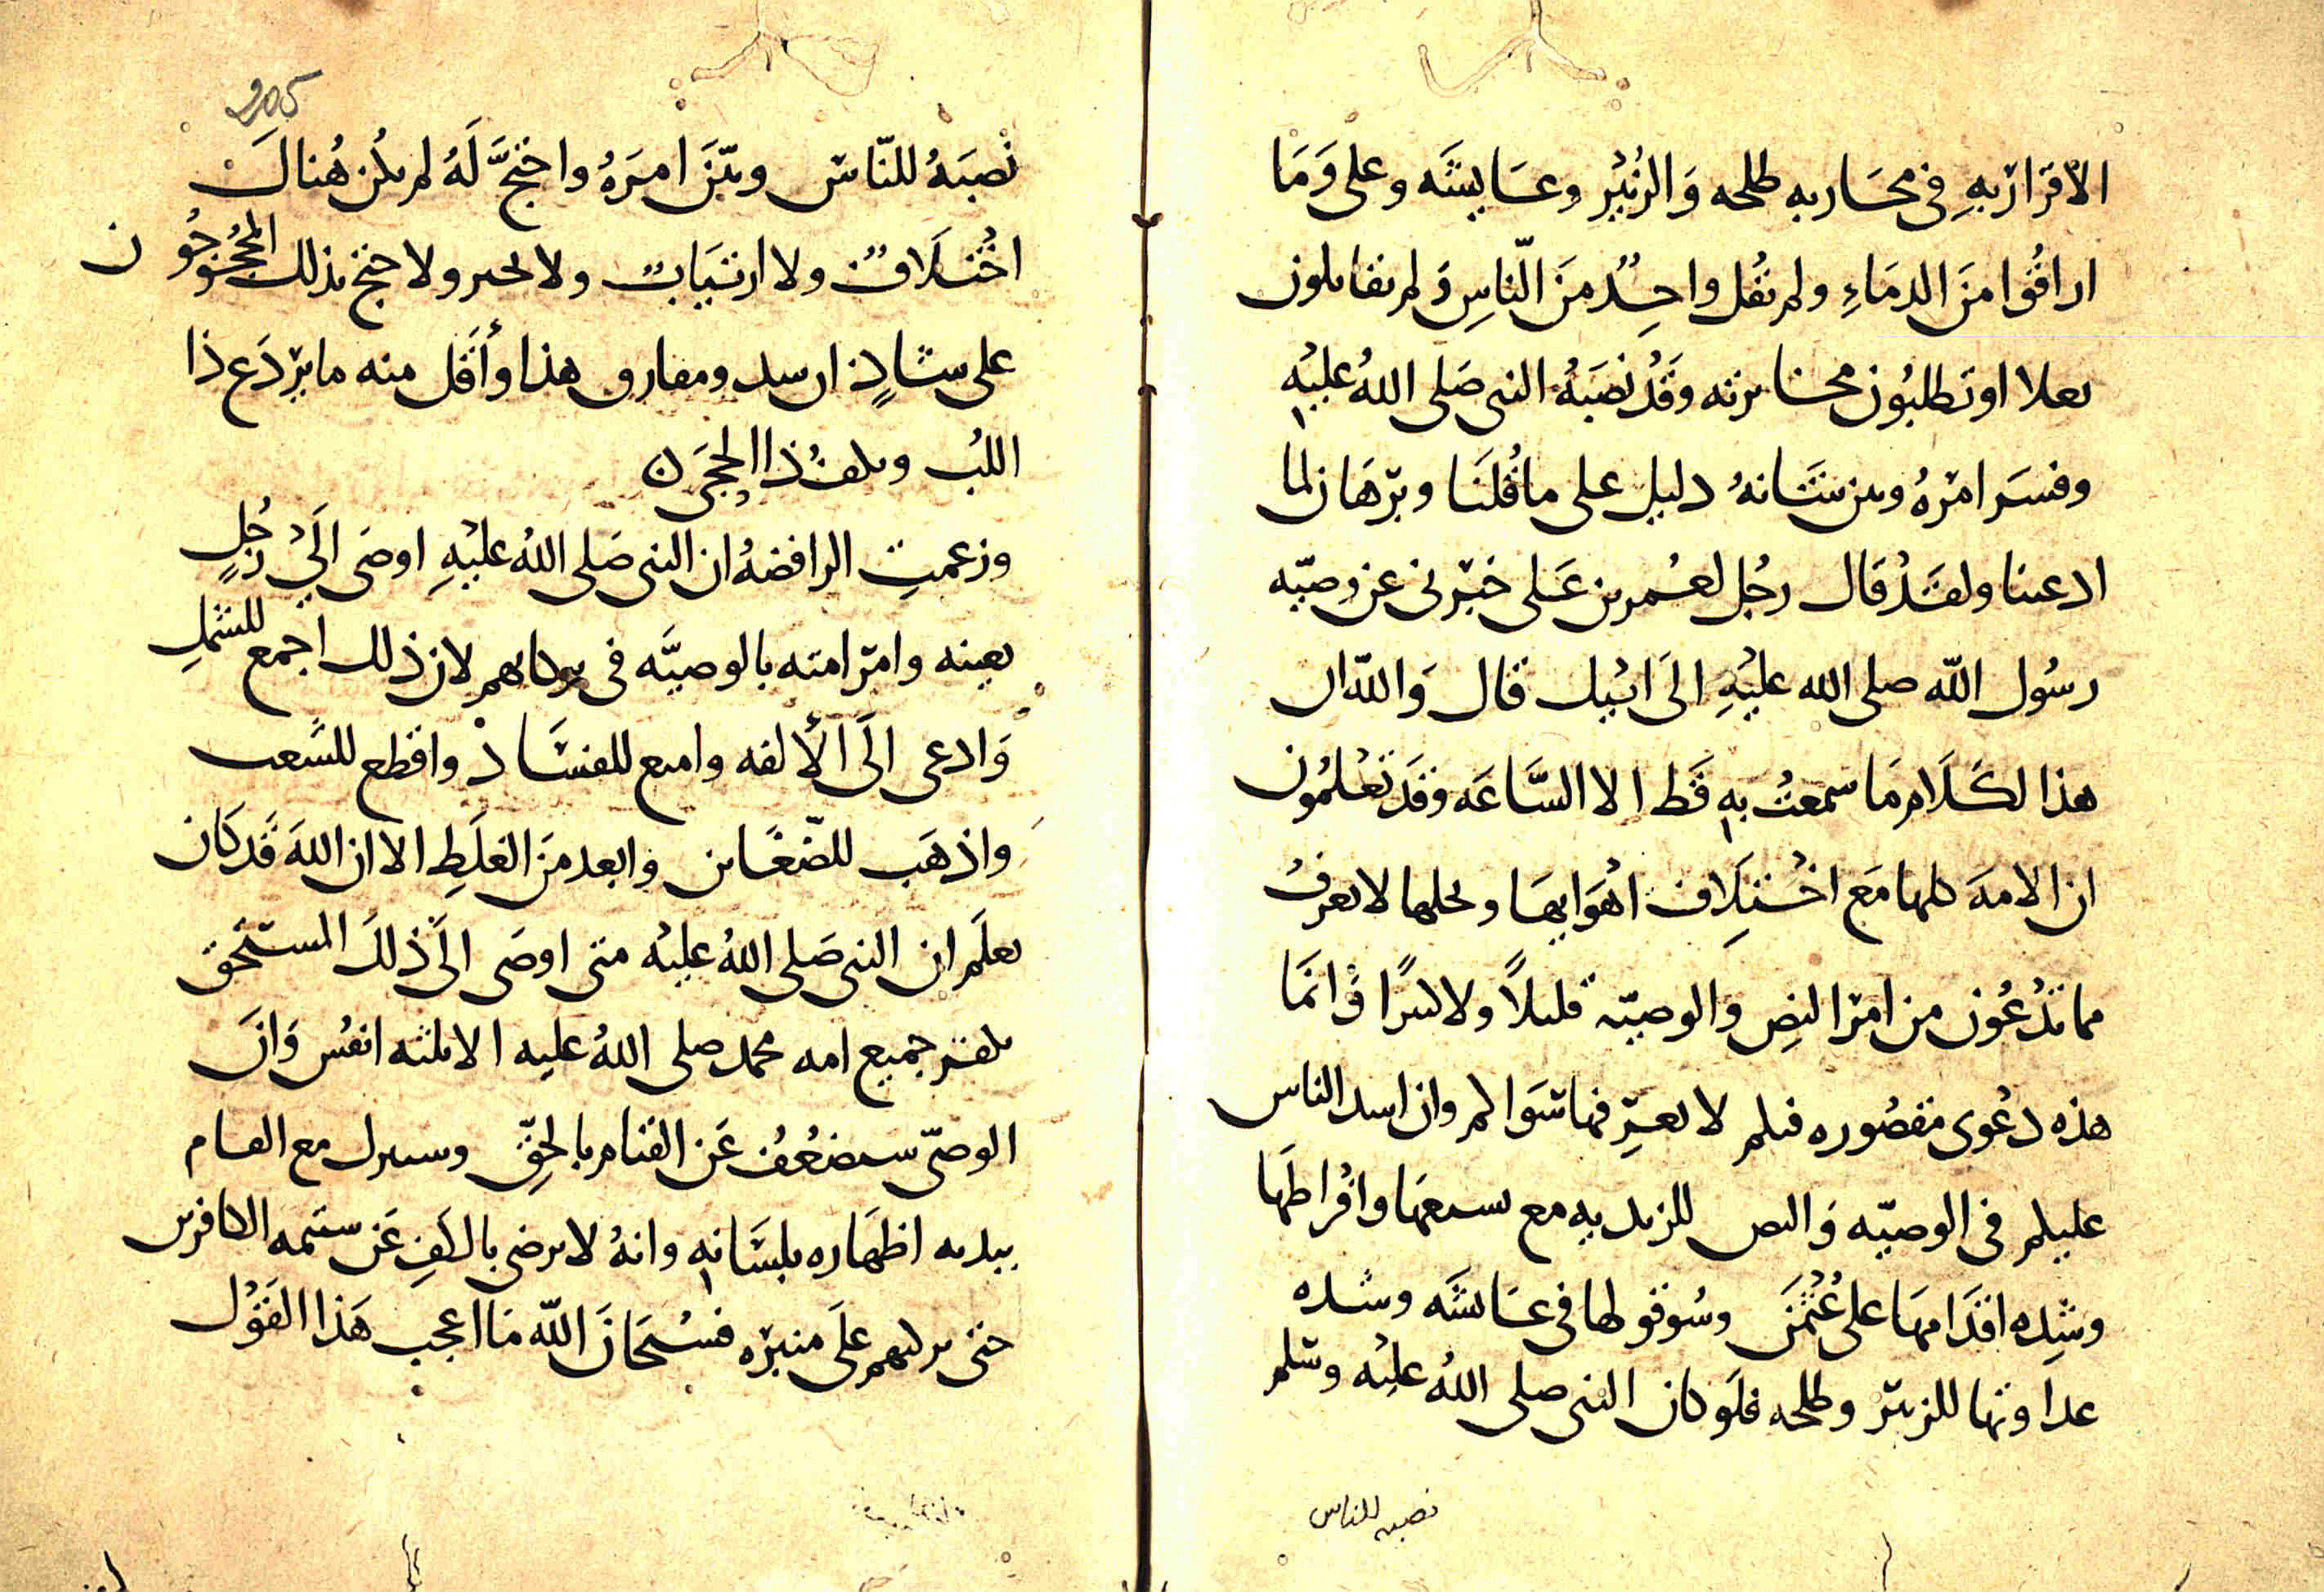 الاقرار به في محاربه طلحه وَالزُبَيْرِ وعَايشَه وعلى وَمَا
اراقُوا مَنَ الدمَاءِ ولم نقُل واحِدٌ مَنَ النّاسِ وَلم نقاتلون
او تطلبُون وقَدْ نصَبَهُ النبى صَلى اللهُ عليْهِ
وفسَر امْرهُ وبين شَانهُ دليل على ما قُلنَا وبرْهَان لما
ادعينا ولقَدْ قال رجُل لعُمر بن عَلى خبّرنى عن وصيّه
رسُول اللّه صلى الله عليْهِ الَى ابيْك قال وَاللّه ان
هذا لكَلَام مَا سمعتُ به قَط الا السَّاعَه وقَد تعْلمُون
ان الامهَ كلها مَع اخْتِلَاف اهْوَايهَا ونحلها لا تعرفُ
مما تدْعُون من امر النصِ والوصيّه قليلاً ولا كثيرًا وَانمَا
هذه دعْوى مقصُوره فيكم لا تعرّفها سَواكم وان اشد الناس
عليكم فى الوصيّه وَالنص للزيديه مع تشيعهَا وافْراطهَا
وشِده اقدَامهَا على عُثْمَنَ وسُو قولها فى عَايشَه وشده
عداوتها للزبيْر وطلحه فلَو كان النبى صلى اللهُ عليْه وسلم
نصبه للناس
نصبَهُ للنّاس وبيّنَ امرَهُ واحتجَّ لَهُ لم يكُن هُنالكَ
اخْتلَافٌ ولا ارتيَابٌ ولا تحير ولا احتج بذلك المحْجُوجُون
على شَاذٍ ومفارق هذا وأقَل منه ما يرْدَع ذا
اللبُ ويكفُ ذا الحجَى ن
وزعمتِ الرافضهُ ان النبى صَلى اللهُ عليْهِ اوصَى الَىْ رَجُلٍ
بعينه وامر امته بالوصيَّه فى لان ذلك اجمع للشملِ
وَادعى الَى الألفه وامنع للفسَادْ واقطع للشَّعب
واذهَب للضّغَاين وابعد مَن الغلَطِ الا ان اللهَ قَد كَان
يعلَم ان النبى صَلى اللهُ عليْه متى اوصَى الَى ذلكَ المستحَق
يكفر جميع امه محمد صلى اللهُ عليه الا ثلثه انفُس وَانَ
الوصىّ سيضعُفُ عَن القيام بالحقِّ مع العام
بيديه اظهَاره بلسَانه وانهُ لا يرضى بالكفِ عَن شتمه الكافرين
حتى يزكيهم علَى منبَرْه فسُبحَانَ اللّه مَا اعجب هَذا القوْل